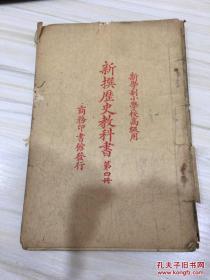 新學制小學校高級用
新撰歷史教科書 第四冊
商務印書館發行